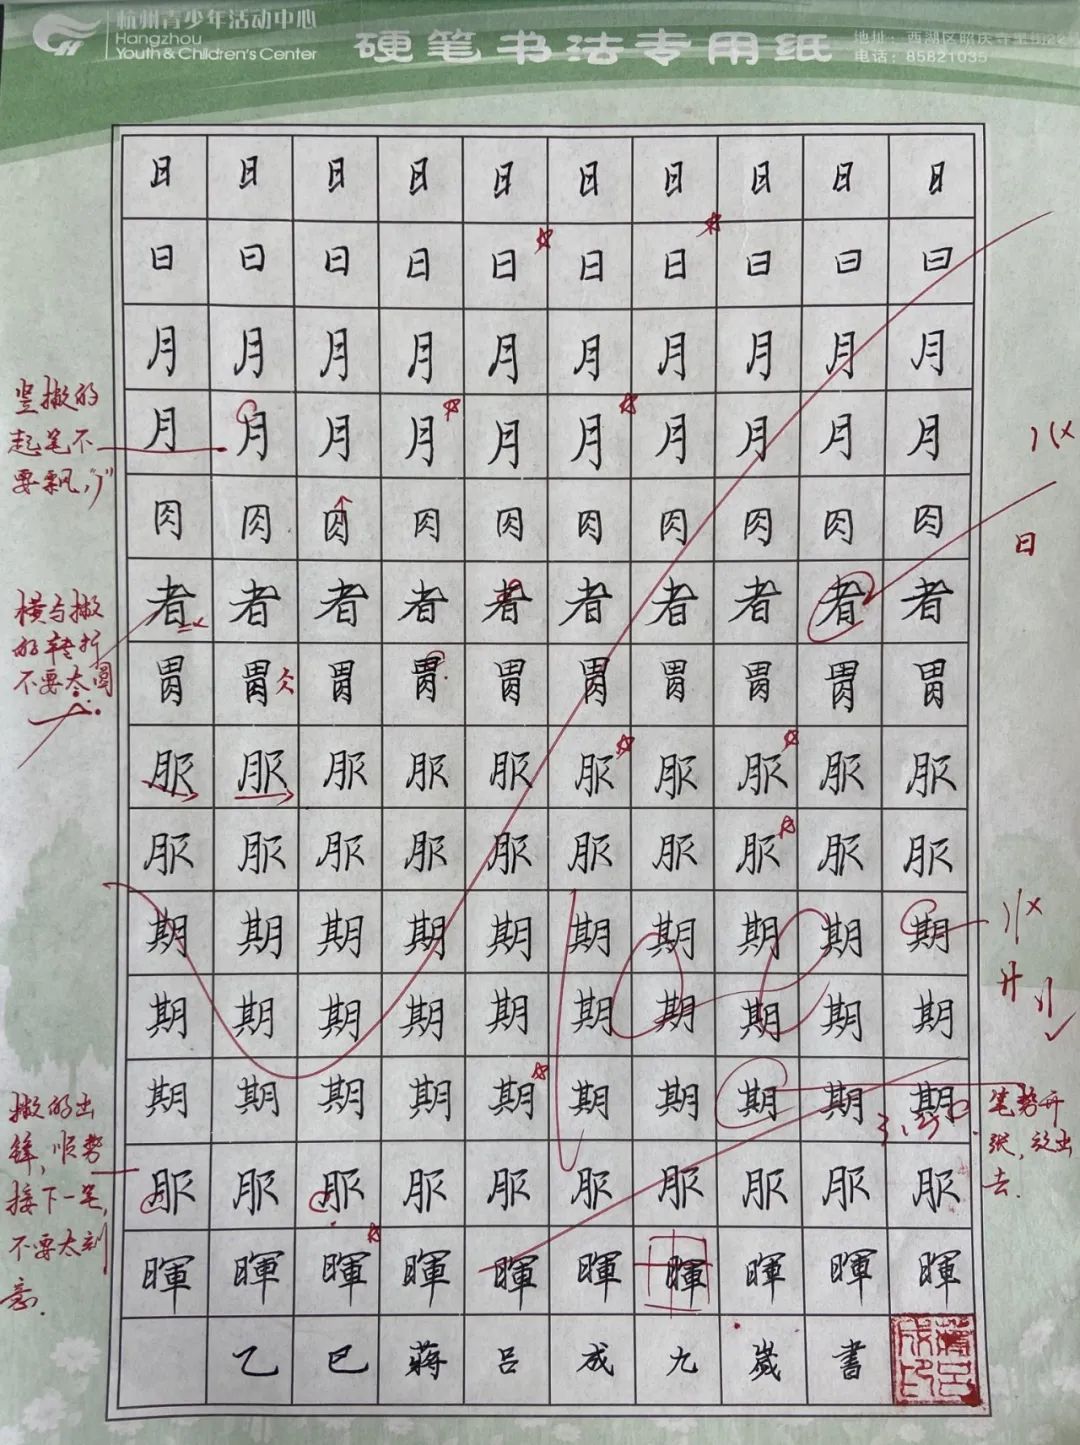 杭州青少年活动中心
Hangzhou
Youth & Children's Center
硬笔书法专用纸
地址：西湖区昭庆寺里街22
电话：85821035
日 日 日 日 日 日 日 日 日 日
曰 曰 曰 曰 曰 曰 曰 曰 曰 曰
月 月 月 月 月 月 月 月 月 月
月 月 月 月 月 月 月 月 月 月
竖撇的
起笔不
要飘,
肉 肉 肉 肉 肉 肉 肉 肉 肉 肉
日
者 者 者 者 者 者 者 者 者 者
横与撇
的转折
不要太圆
胃 胃 胃 胃 胃 胃 胃 胃 胃 胃
服 服 服 服 服 服 服 服 服 服
服 服 服 服 服 服 服 服 服 服
期 期 期 期 期 期 期 期 期 期
期 期 期 期 期 期 期 期 期 期
期 期 期 期 期 期 期 期 期 期
3.5
笔势开
张,放出
去.
撇的出
锋,顺势
接下一笔,
不要太刻
意.
服 服 服 服 服 服 服 服 服 服
暉 暉 暉 暉 暉 暉 暉 暉 暉 暉
乙 巳 蒋 吕 成 九 歲 書